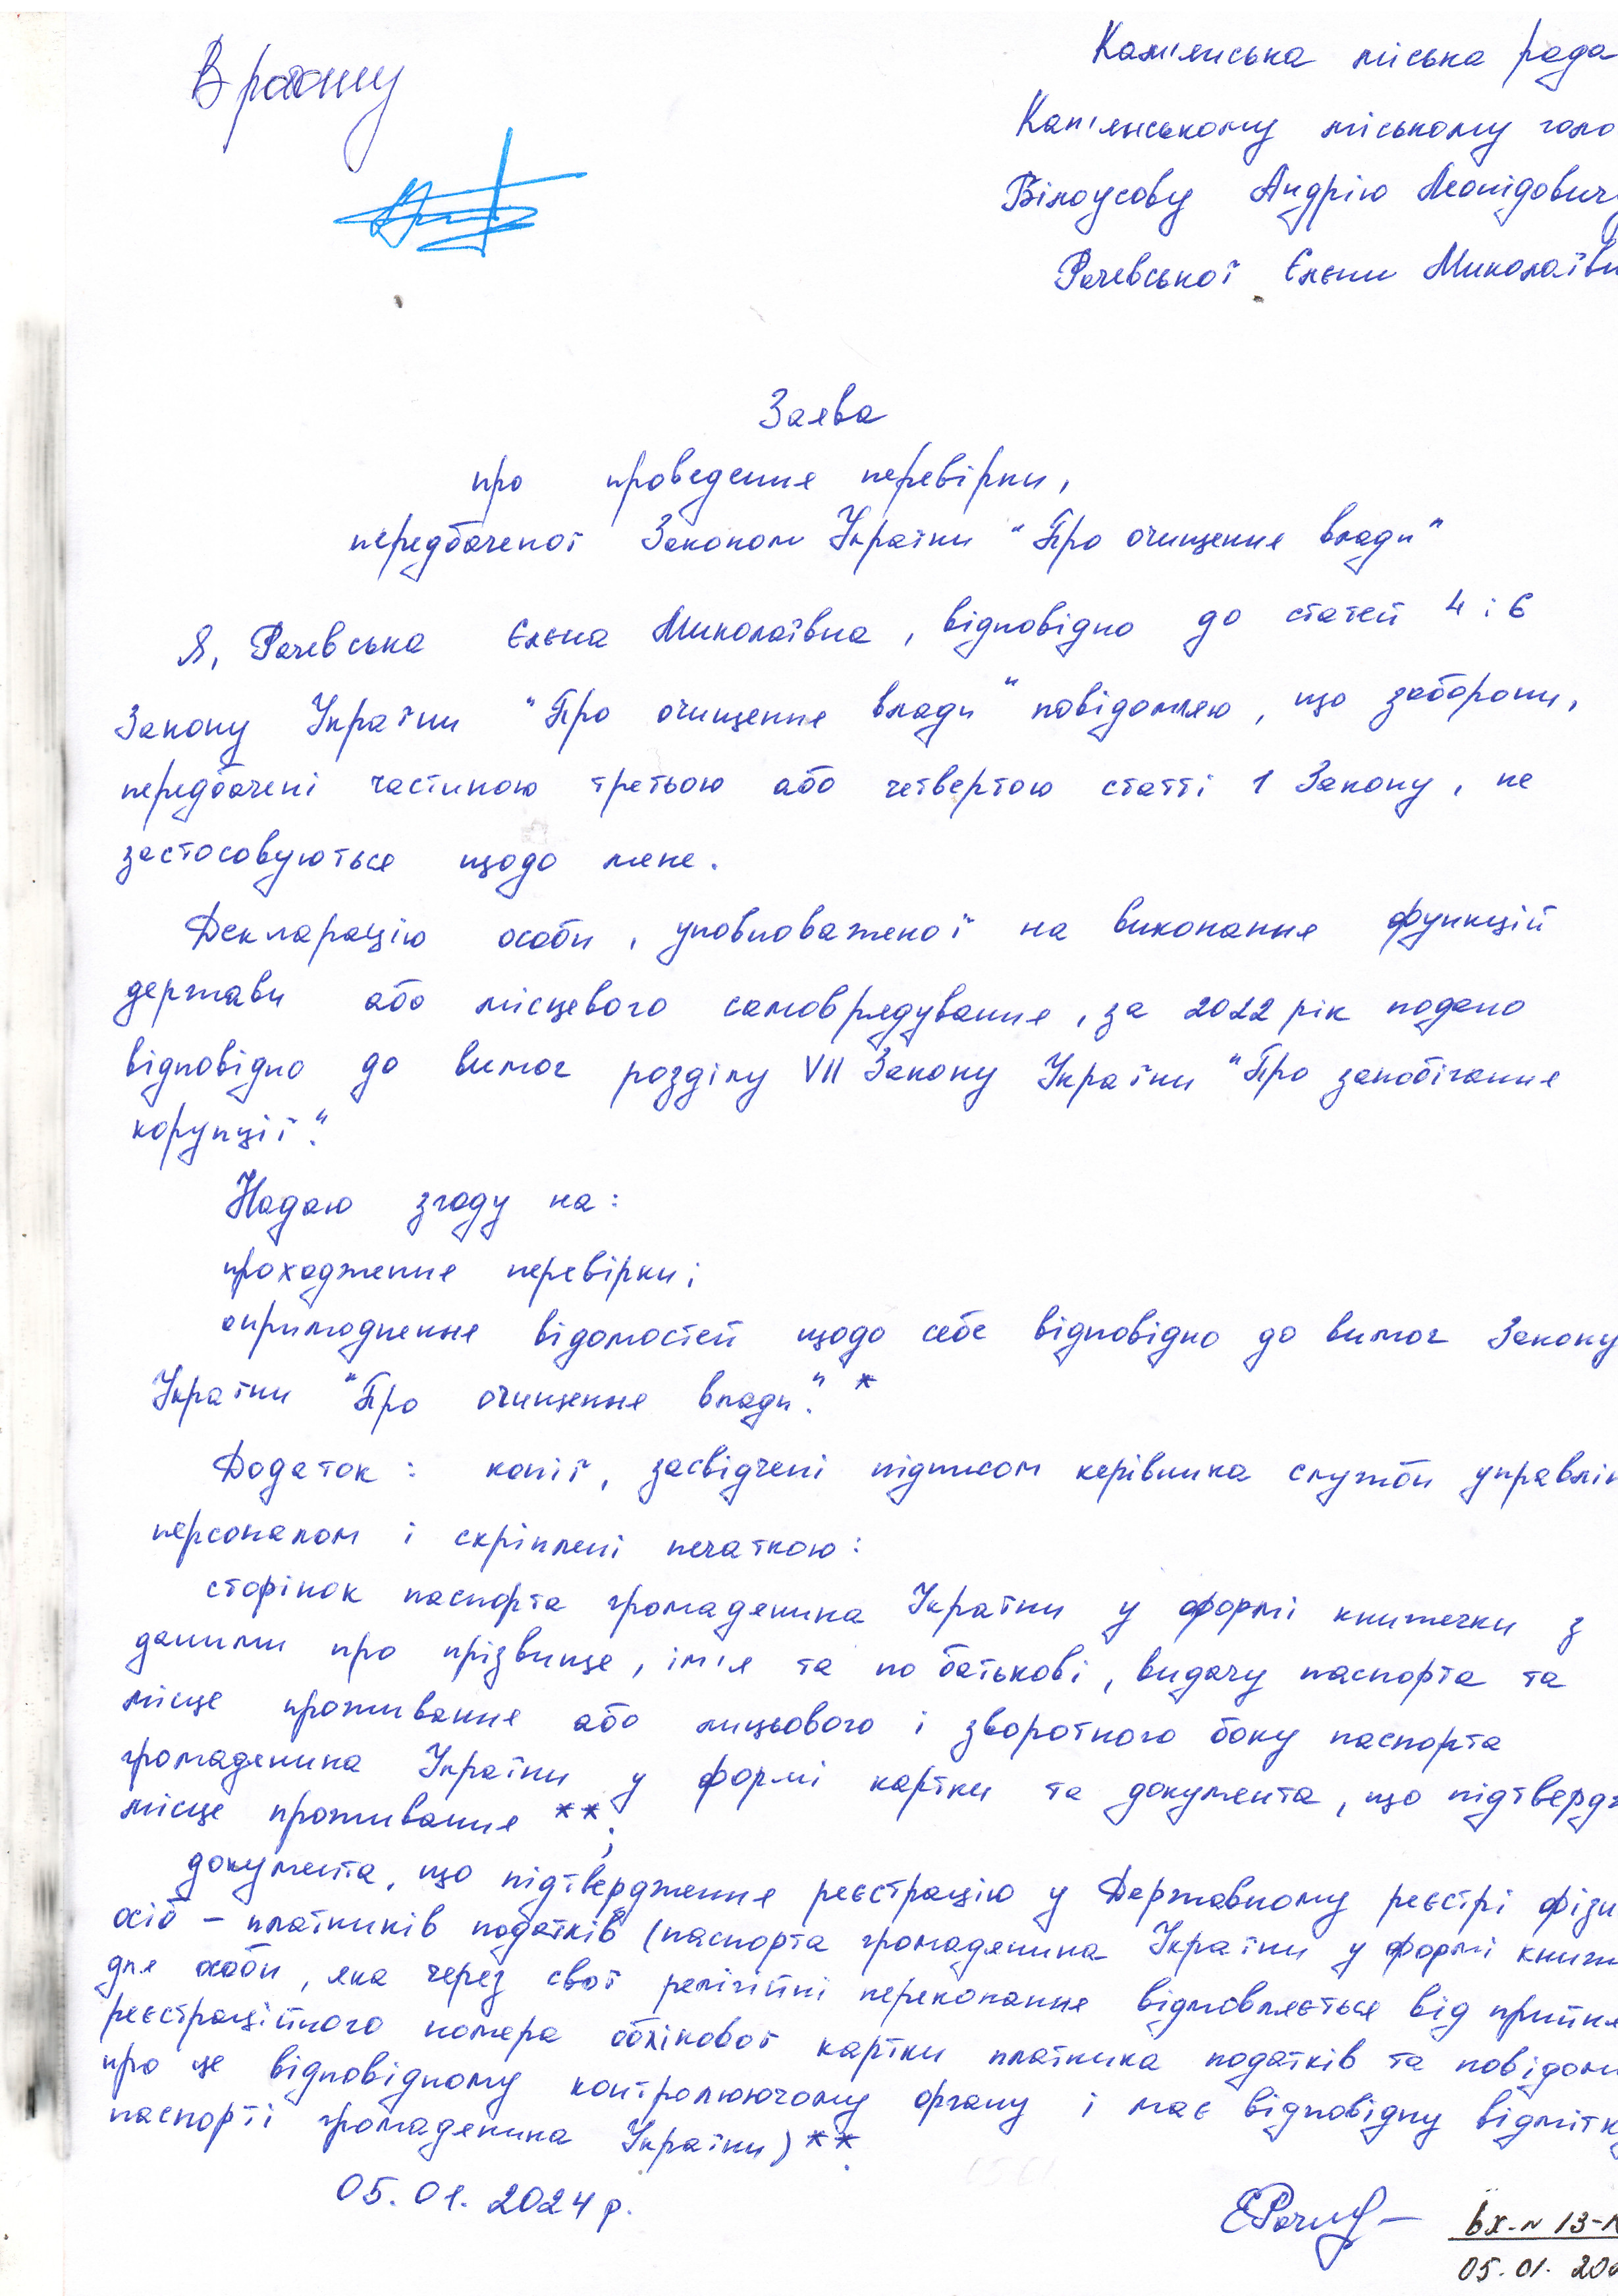 В роботу
Кам'янська міська рада
Кам'янському міському голо
Білоусову Андрію Леонідовичу
Рачевської Єлєни Миколаївн
Заява
про проведення перевірки,
передбаченої Законом України "Про очищення влади"
Я, Рачевська Єлєна Миколаївна, відповідно до статей 4 і 6
Закону України "Про очищення влади" повідомляю, що заборони,
передбачені частиною третьою або четвертою статті 1 Закону, не
застосовуються щодо мене.
Декларацію особи, уповноваженої на виконання функцій
держави або місцевого самоврядування, за 2022 рік подано
відповідно до вимог розділу VII Закону України "Про запобігання
корупції".
Надаю згоду на:
проходження перевірки;
оприлюднення відомостей щодо себе відповідно до вимог Закону
України "Про очищення влади". *
Додаток: копії, засвідчені підписом керівника служби управлін
персоналом і скріплені печаткою:
сторінок паспорта громадянина України у формі книжечки з
даними про прізвище, ім'я та по батькові, видачу паспорта та
місце проживання або лицьового і зворотного боку паспорта
громадянина України у формі картки та документа, що підтвердж
місце проживання **;
документа, що підтвердження реєстрацію у Державному реєстрі фізи
осіб - платників податків (паспорта громадянина України у формі книж
для особи, яка через свої релігійні переконання відмовляється від прийня
реєстраційного номера облікової картки платника податків та повідоми
про це відповідному контролюючому органу і має відповідну відмітку
паспорті громадянина України) **.
05.01.2024 р.
Вх. № 13-
05.01. 20